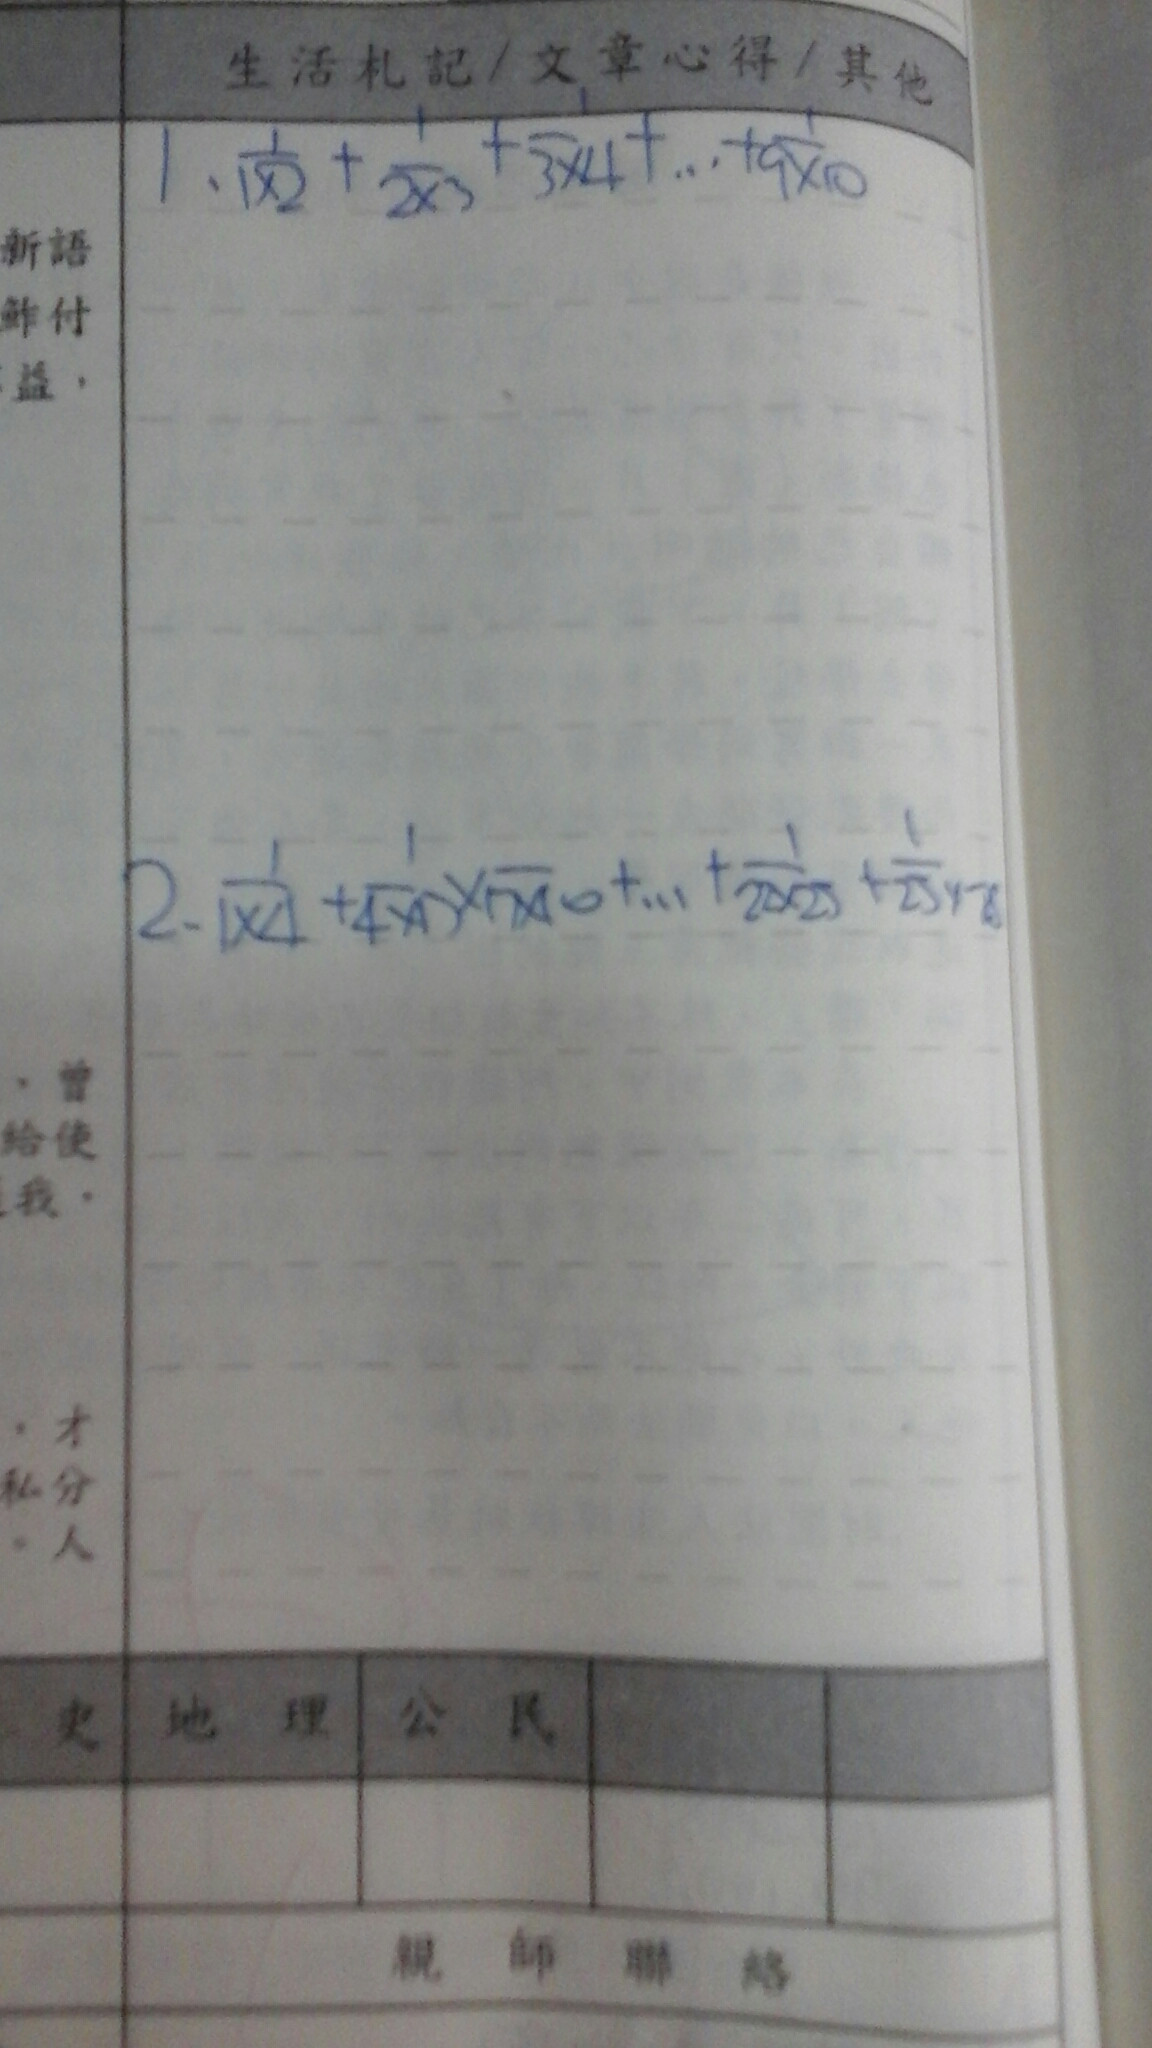 生活札記/文章心得/其他
1、1/1×2 + 1/2×3 + 1/3×4 + ... + 1/9×10
新語
鮓付
益，
2. 1/1×4 + 1/4×7 × 1/7×10 + ... + 1/22×25 + 1/25×28
、曾
給使
我。
，才
私分
。人
史 地理 公民
親師聯絡